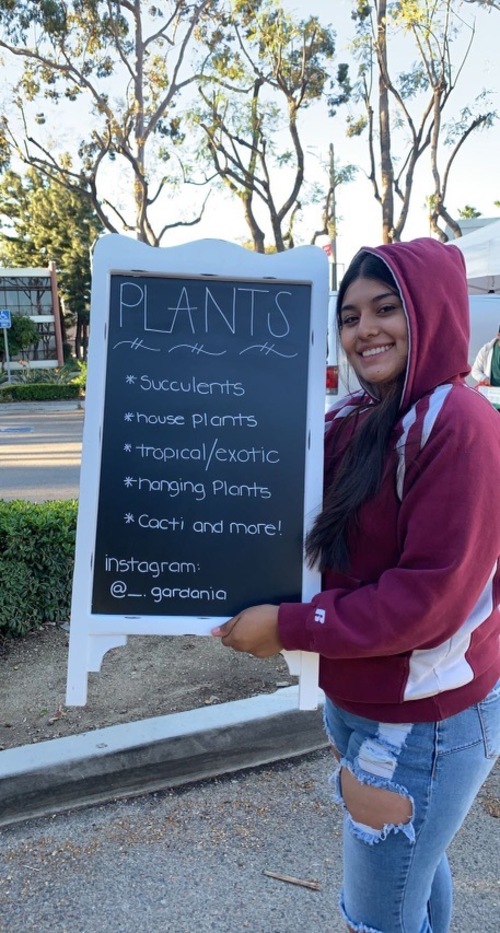 PLANTS
* Succulents
* house plants
* tropical/exotic
* hanging Plants
* Cacti and more!
instagram:
@_. gardania
R